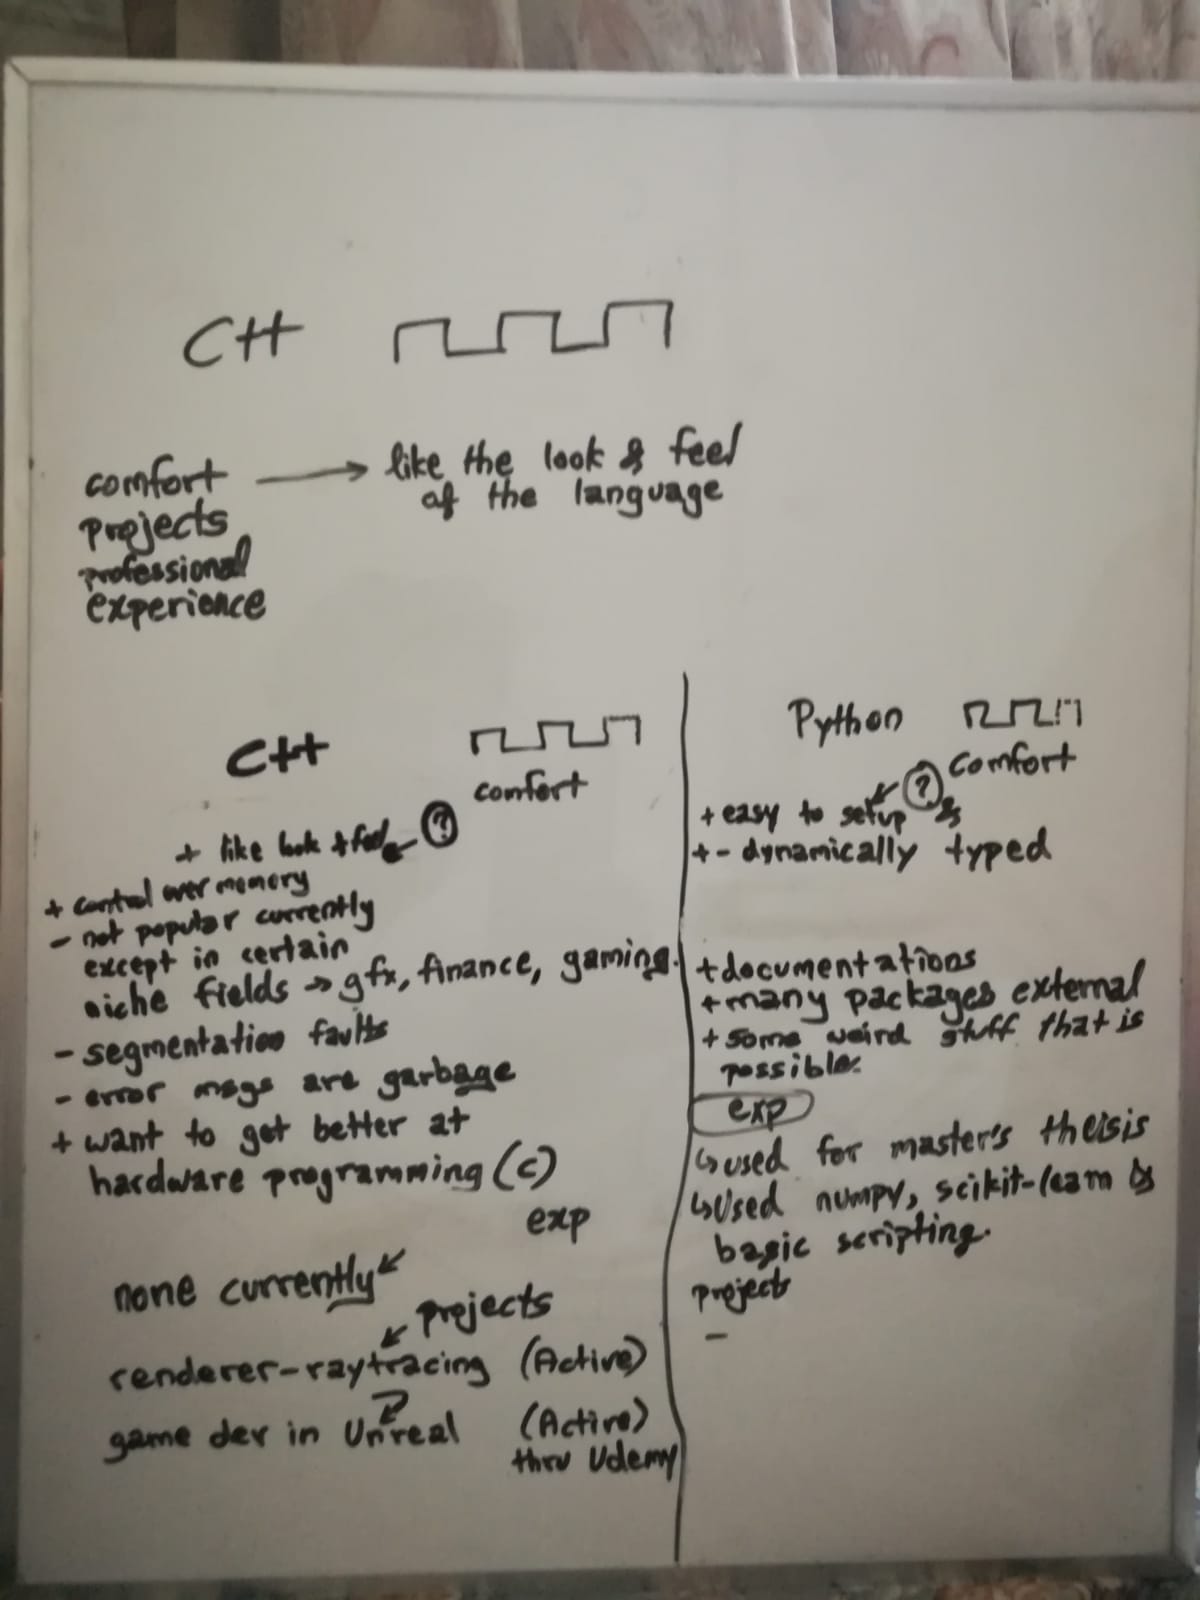 C++
comfort → like the look & feel
of the language
projects
professional
experience
C++
comfort
+ like look & feel ← ?
+ control over memory
- not popular currently
except in certain
niche fields → gfx, finance, gaming.
- segmentation faults
- error msgs are garbage
+ want to get better at
hardware programming (C)
exp
none currently
projects
renderer-raytracing (Active)
game dev in Unreal (Active)
thru Udemy
Python
comfort
?
+ easy to setup &
+ - dynamically typed
+ documentations
+ many packages external
+ some weird stuff that is
possible.
exp
↳ used for master's thesis
↳ Used numpy, scikit-learn &
basic scripting.
projects
-